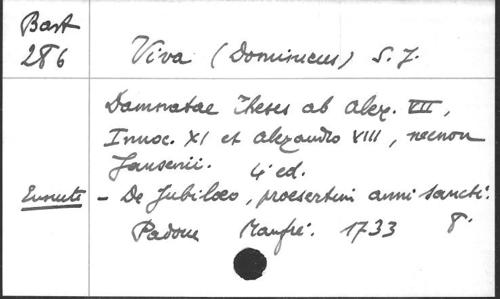 Bast
286
Viva (Dominicus) S. J.
Damnatae Theses ab Alex. VII,
Innoc. XI et Alexandro VIII, necnon
Jansenii. 4ª ed.
Ensuite - De Jubilaeo, praesertim anni sancti.
Padoue Manfré. 1733 8º.